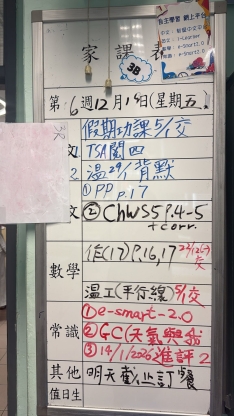 自主學習 網上平台
家課表
3B
第16週12月19日(星期五)
假期功課5/1交
文 TSA閱四
2 溫29/1背默
①PP p.17
文 ②ChWS5 P.4-5
+corr.
數學 作(17) P.16,17
溫工(平行線) 5/1交
①e-smart-2.0
常識 ②GC(天氣與我
③14/1/2026進評2
其他 明天截止訂餐
值日生